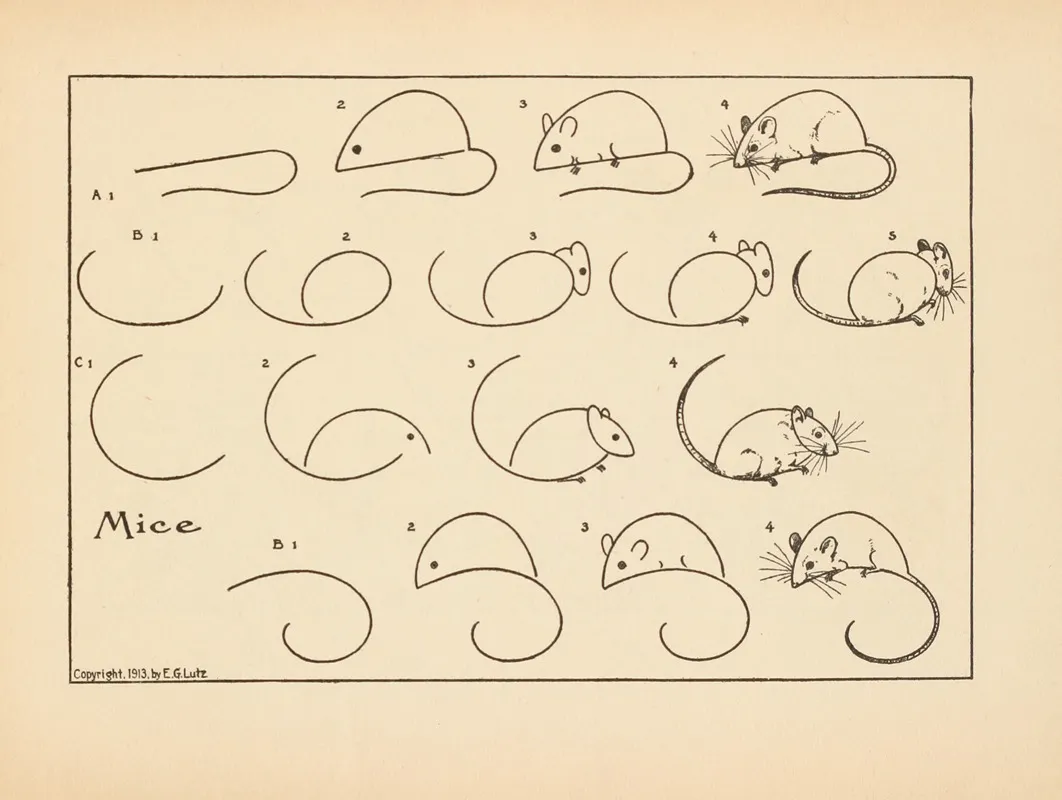 2 3 4
A 1
B 1 2 3 4 5
C 1 2 3 4
Mice
B 1 2 3 4
Copyright, 1913, by E.G.Lutz